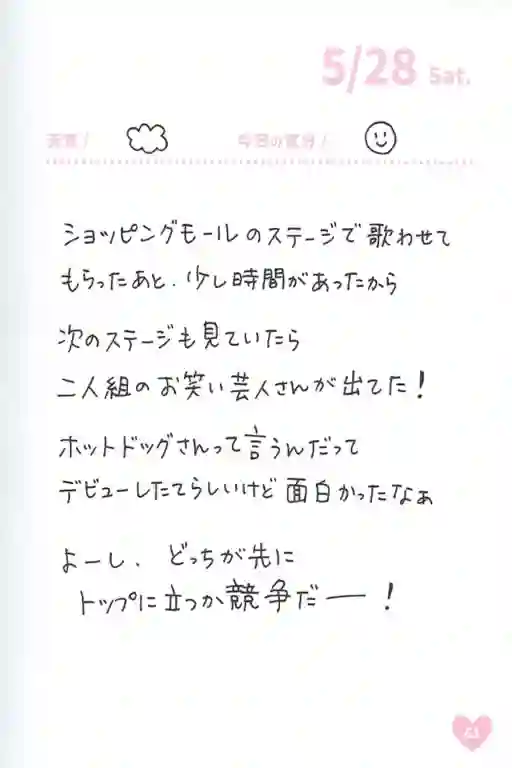 5/28 Sat.
天気／
今日の気分／
ショッピングモールのステージで歌わせて
もらったあと、少し時間があったから
次のステージも見ていたら
二人組のお笑い芸人さんが出てた！
ホットドッグさんって言うんだって
デビューしたてらしいけど面白かったなぁ
よーし、どっちが先に
トップに立つか競争だー！